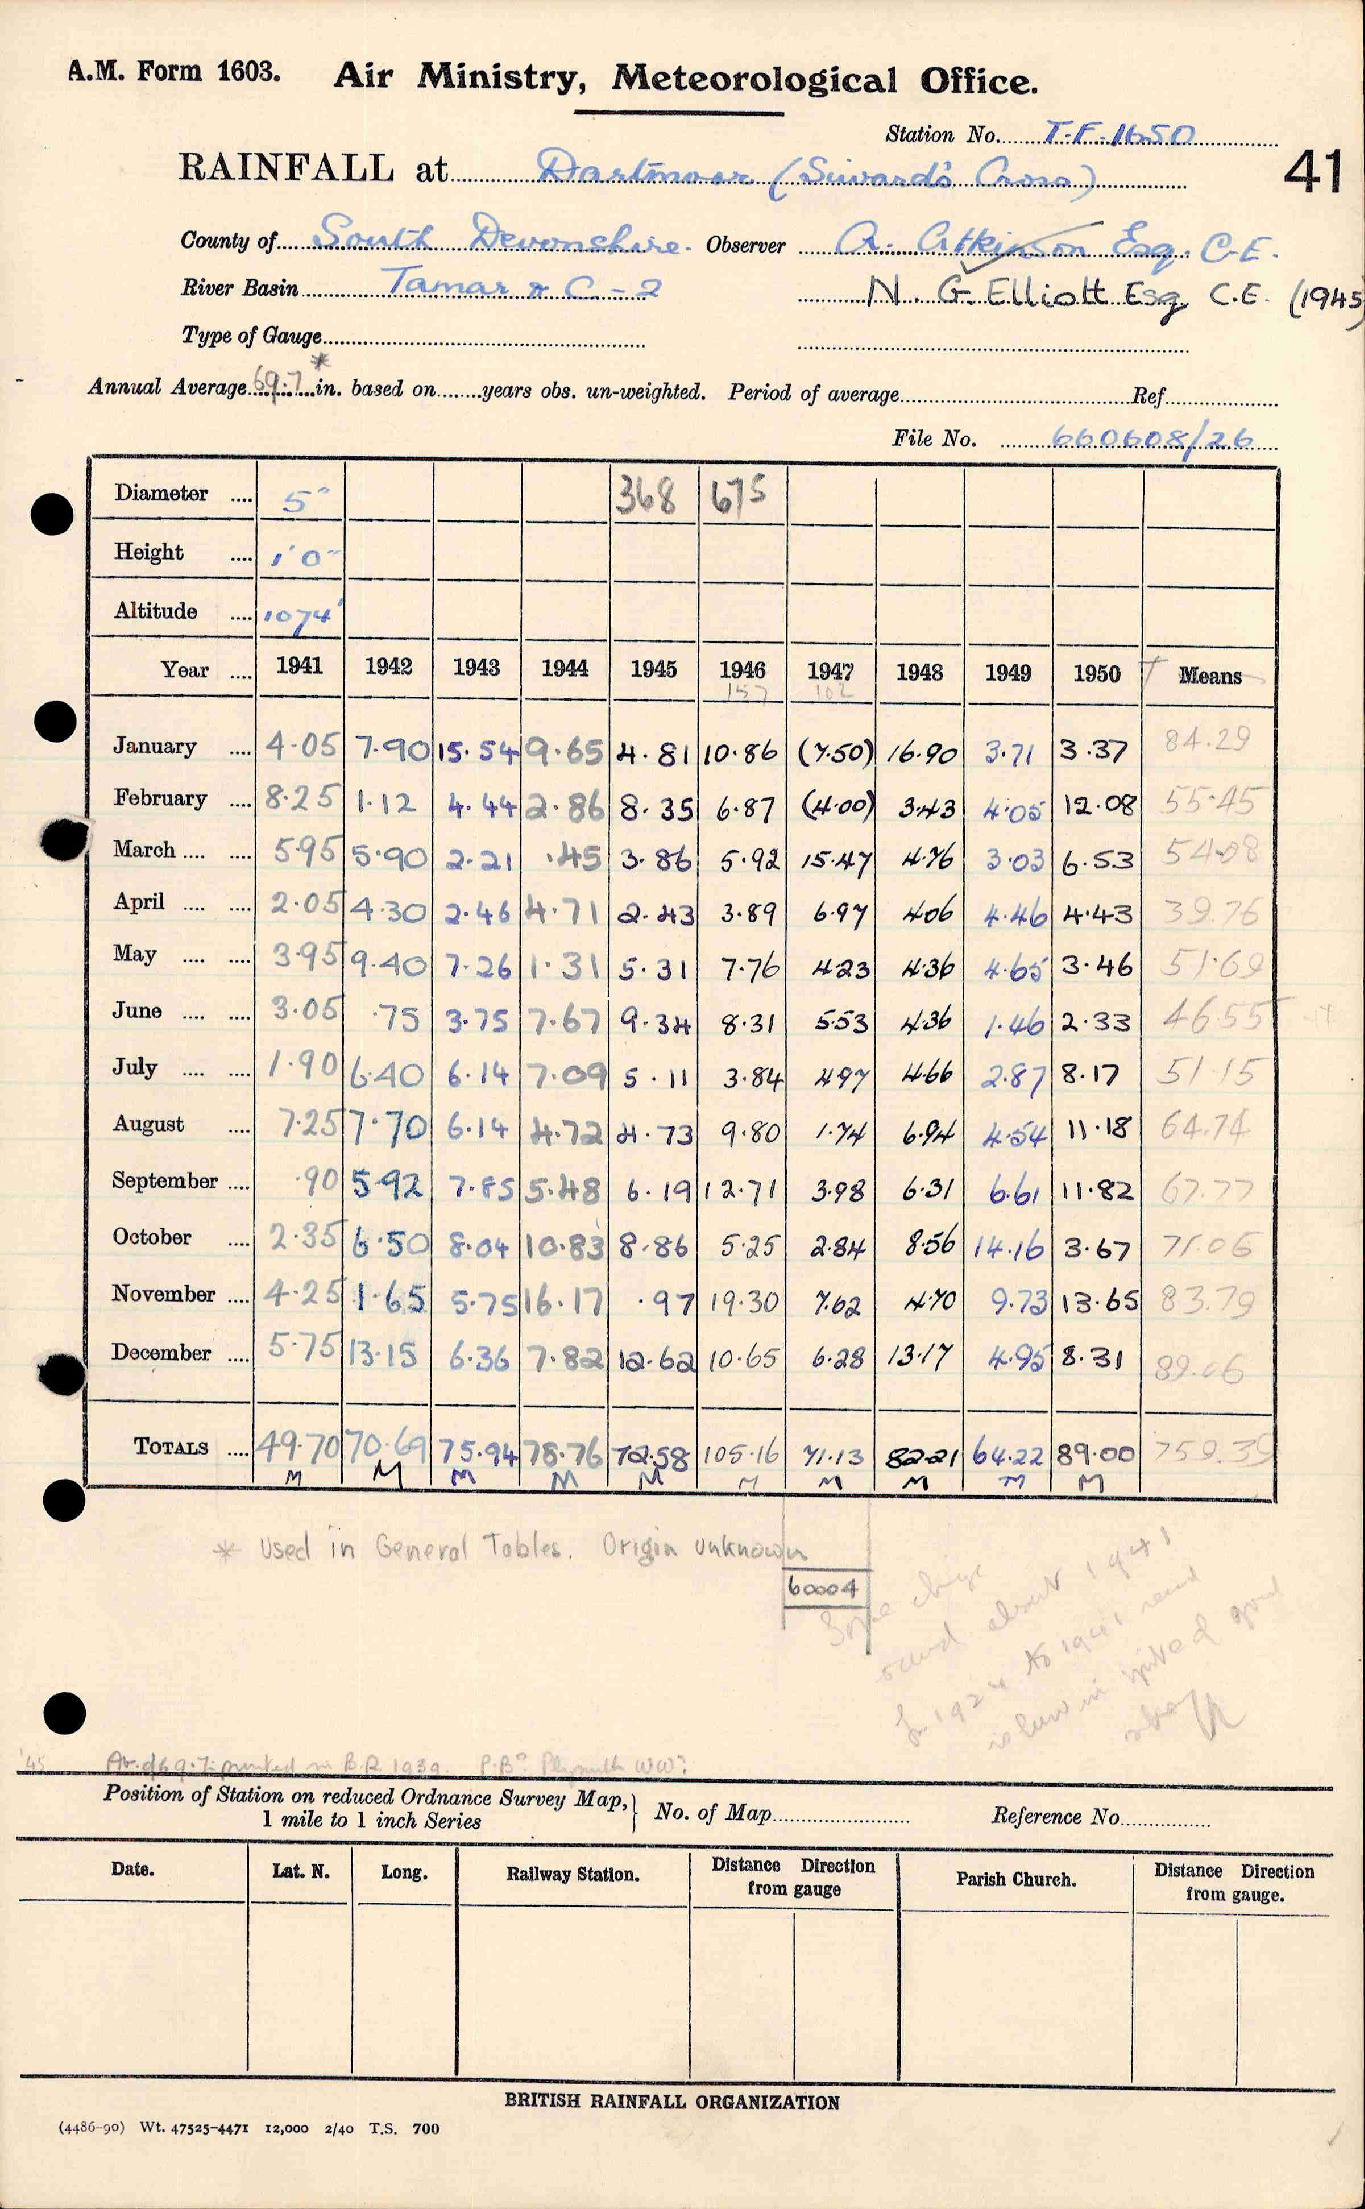 A.M. Form 1603. Air Ministry, Meteorological Office.
Station No. T.F. 1650
41
RAINFALL at Dartmoor (Siward's Cross)
County of South Devonshire. Observer A. Atkinson Esq. C.E.
River Basin Tamar & C - 2 N. G. Elliott Esq C.E. (1945)
Type of Gauge
Annual Average 69.7* in. based on ........ years obs. un-weighted. Period of average Ref
File No. 660608/26
Diameter .... 5" 368 675
Height .... 1'0"
Altitude .... 1074'
Year .... 1941 1942 1943 1944 1945 1946 1947 1948 1949 1950 T Means
157 102
January .... 4.05 7.90 15.54 9.65 4.81 10.86 (7.50) 16.90 3.71 3.37 84.29
February .... 8.25 1.12 4.44 2.86 8.35 6.87 (4.00) 3.43 4.05 12.08 55.45
March .... .... 5.95 5.90 2.21 .45 3.86 5.92 15.47 4.76 3.03 6.53 54.08
April .... .... 2.05 4.30 2.46 4.71 2.43 3.89 6.97 4.06 4.46 4.43 39.76
May .... .... 3.95 9.40 7.26 1.31 5.31 7.76 4.23 4.36 4.65 3.46 51.69
June .... .... 3.05 .75 3.75 7.67 9.34 8.31 5.53 4.36 1.46 2.33 46.55
July .... .... 1.90 6.40 6.14 7.09 5.11 3.84 4.97 4.66 2.87 8.17 51.15
August .... 7.25 7.70 6.14 4.72 4.73 9.80 1.74 6.94 4.54 11.18 64.74
September .... .90 5.92 7.85 5.48 6.19 12.71 3.98 6.31 6.61 11.82 67.77
October .... 2.35 6.50 8.04 10.83 8.86 5.25 2.84 8.56 14.16 3.67 71.06
November .... 4.25 1.65 5.75 16.17 .97 19.30 7.62 4.70 9.73 13.65 83.79
December .... 5.75 13.15 6.36 7.82 12.62 10.65 6.28 13.17 4.95 8.31 89.06
TOTALS .... 49.70 70.69 75.94 78.76 72.58 105.16 71.13 82.21 64.22 89.00 759.39
M M M M M M M M M M
* Used in General Tables. Origin unknown
60004
Some change
round about 1941
1924 to 1941
in spite of good
'45 Av. of 69.7 printed in B.R. 1939. P.Bn Plymouth WW?
Position of Station on reduced Ordnance Survey Map, } No. of Map Reference No.
1 mile to 1 inch Series
Date. Lat. N. Long. Railway Station. Distance Direction from gauge Parish Church. Distance Direction from gauge.
BRITISH RAINFALL ORGANIZATION
(4486-90) Wt. 47525-4471 12,000 2/40 T.S. 700